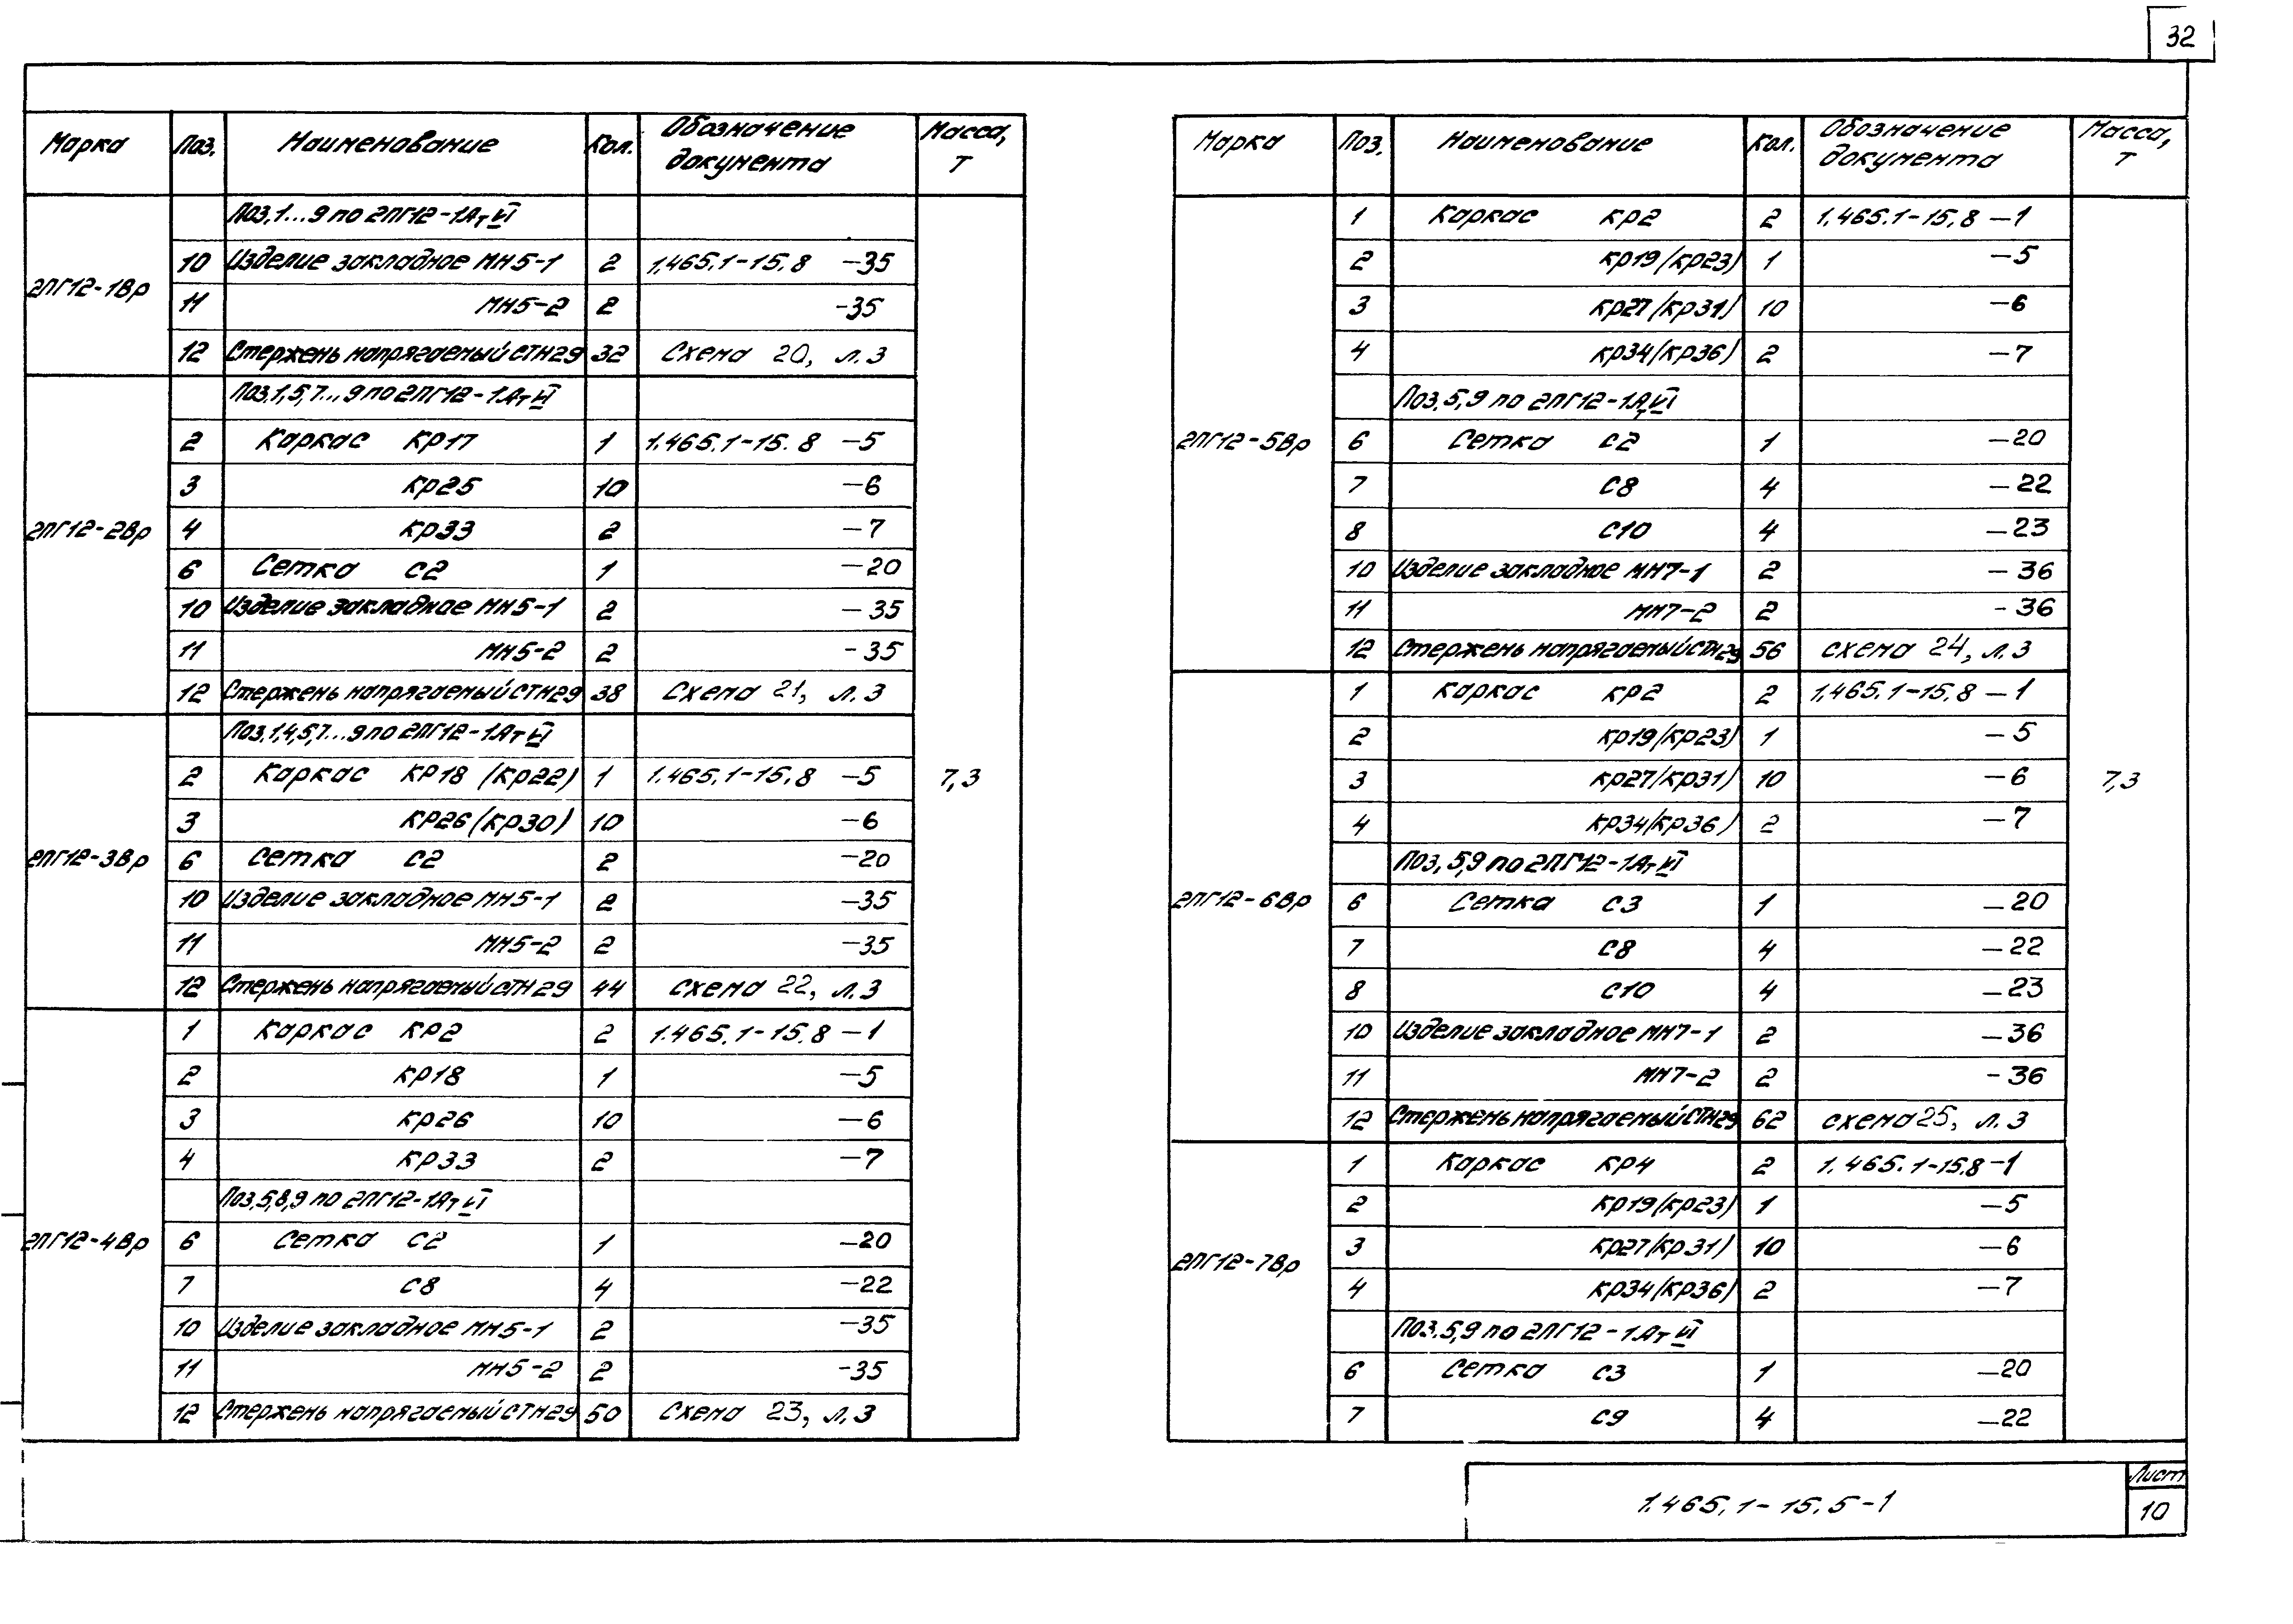 32
Марка Поз. Наименование Кол. Обозначение документа Масса, Т
Поз.1...9 по 2ПГ12-1АтVI
2ПГ12-1Вр
10 Изделие закладное МН5-1 2 1.465.1-15.8 -35
11 МН5-2 2 -35
12 Стержень напрягаемый СТН29 32 Схема 20, л.3
Поз.1,5,7...9 по 2ПГ12-1АтVI
2ПГ12-2Вр
2 Каркас КР17 1 1.465.1-15.8 -5
3 КР25 10 -6
4 КР33 2 -7
6 Сетка С2 1 -20
10 Изделие закладное МН5-1 2 -35
11 МН5-2 2 -35
12 Стержень напрягаемый СТН29 38 Схема 21, л.3
Поз.1,4,5,7...9 по 2ПГ12-1АтVI
2ПГ12-3Вр
2 Каркас КР18 (КР22) 1 1.465.1-15.8 -5 7,3
3 КР26 (КР30) 10 -6
6 Сетка С2 2 -20
10 Изделие закладное МН5-1 2 -35
11 МН5-2 2 -35
12 Стержень напрягаемый СТН29 44 схема 22, л.3
2ПГ12-4Вр
1 Каркас КР2 2 1.465.1-15.8 -1
2 КР18 1 -5
3 КР26 10 -6
4 КР33 2 -7
Поз.5,8,9 по 2ПГ12-1АтVI
6 Сетка С2 1 -20
7 С8 4 -22
10 Изделие закладное МН5-1 2 -35
11 МН5-2 2 -35
12 Стержень напрягаемый СТН29 50 Схема 23, л.3
Марка Поз. Наименование Кол. Обозначение документа Масса, Т
2ПГ12-5Вр
1 Каркас КР2 2 1.465.1-15.8 -1
2 КР19 (КР23) 1 -5
3 КР27 (КР31) 10 -6
4 КР34 (КР36) 2 -7
Поз.5,9 по 2ПГ12-1АтVI
6 Сетка С2 1 -20
7 С8 4 -22
8 С10 4 -23
10 Изделие закладное МН7-1 2 -36
11 МН7-2 2 -36
12 Стержень напрягаемый СТН29 56 схема 24, л.3
2ПГ12-6Вр
1 Каркас КР2 2 1.465.1-15.8 -1
2 КР19 (КР23) 1 -5
3 КР27 (КР31) 10 -6 7,3
4 КР34 (КР36) 2 -7
Поз.5,9 по 2ПГ12-1АтVI
6 Сетка С3 1 -20
7 С8 4 -22
8 С10 4 -23
10 Изделие закладное МН7-1 2 -36
11 МН7-2 2 -36
12 Стержень напрягаемый СТН29 62 схема 25, л.3
2ПГ12-7Вр
1 Каркас КР4 2 1.465.1-15.8 -1
2 КР19 (КР23) 1 -5
3 КР27 (КР31) 10 -6
4 КР34 (КР36) 2 -7
Поз.5,9 по 2ПГ12-1АтVI
6 Сетка С3 1 -20
7 С9 4 -22
1.465.1-15.5-1
Лист
10